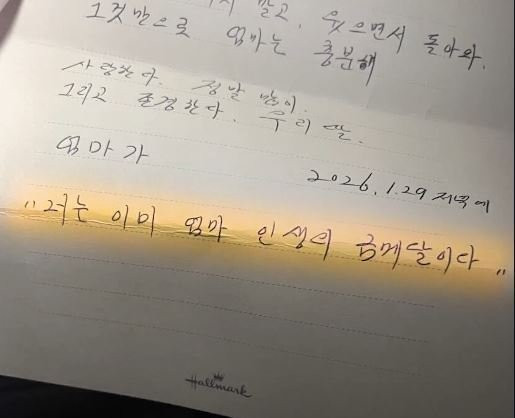 말고, 웃으면서 돌아와.
그것만으로 엄마는 충분해
사랑한다. 정말 많이.
그리고 존경한다. 우리 딸.
엄마가
2026.1.29 저녁에
"너는 이미 엄마 인생의 금메달이다"
Hallmark